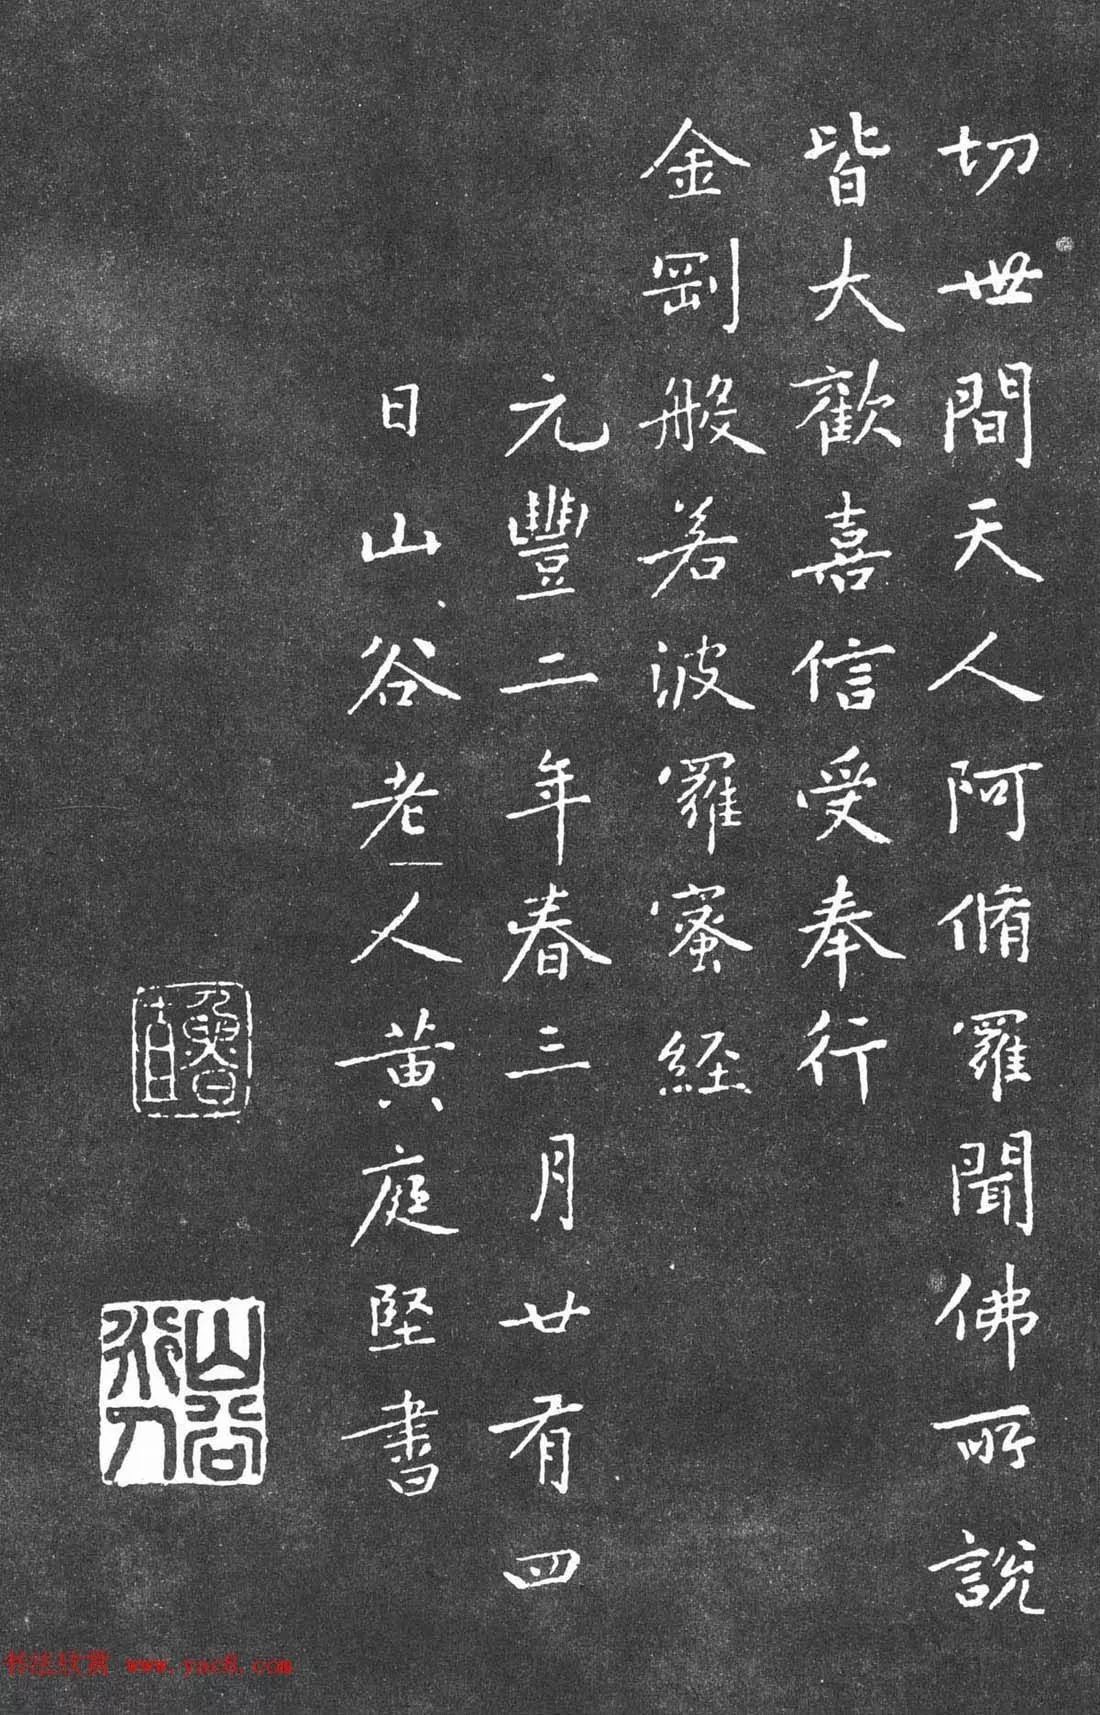 切世間天人阿脩羅聞佛所說
皆大歡嘉信受奉行
金剛般若波羅蜜経
元豐二年春三月廿有四
日山谷老人黄庭堅書
魯直
山谷
书法欣赏 www.yac8.com